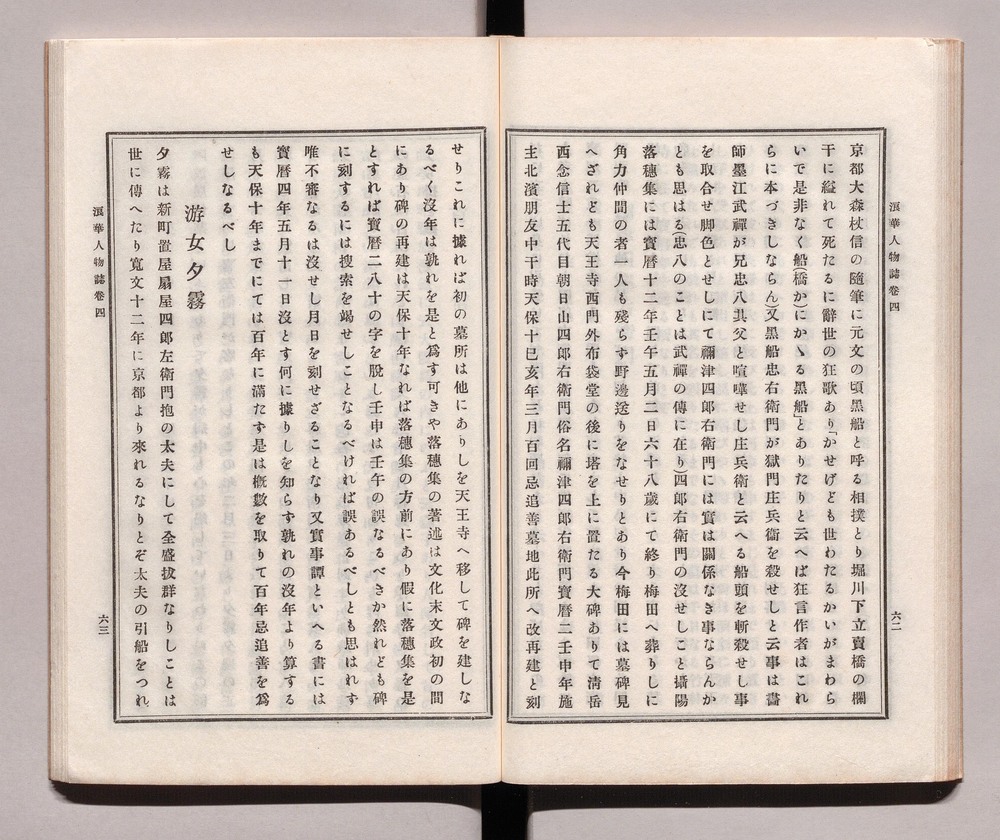 浪華人物誌卷四
六二
京都大森杖信の隨筆に元文の頃黑船と呼る相撲とり堀川下立賣橋の欄
干に縊れて死たるに辭世の狂歌あり「かせげども世わたるかいがまわら
いで是非なく船(橋か)にかゝる黑船」とありたりと云へば狂言作者はこれ
らに本づきしならん)又黑船忠右衛門が獄門庄兵衞を殺せしと云事は書
師墨江武禪が兄忠八其父と喧嘩せし庄兵衛と云へる船頭を斬殺せし事
を取合せ脚色とせしにて禰津四郎右衛門には實は關係なき事ならんか
とも思はる(忠八のことは武禪の傳に在り)四郎右衛門の沒せしこと攝陽
落穗集には寳曆十二年壬午五月二日六十八歲にて終り梅田へ葬りしに
角力仲間の者一人も殘らず野邊送りをなせりとあり今梅田には墓碑見
へざれども天王寺西門外布袋堂の後に塔を上に置たる大碑ありて淸岳
西念信士五代目朝日山四郎右衛門俗名禰津四郎右衛門寶曆二壬申年施
主北濱朋友中干時天保十己亥年三月百回忌追善墓地此所へ改再建と刻
せりこれに據れば初の墓所は他にありしを天王寺へ移して碑を建しな
るべく沒年は孰れを是と爲す可きや落穗集の著述は文化末文政初の間
にあり碑の再建は天保十年なれば落穗集の方前にあり假に落穗集を是
とすれば寶曆二八十の字を脫し壬申は壬午の誤なるべきか然れども碑
に刻するには搜索を竭せしことなるべければ誤あるべしとも思はれず
唯不審なるは沒せし月日を刻せざることなり又實事譚といへる書には
寶曆四年五月十一日沒とす何に據りしを知らず孰れの沒年より算する
も天保十年までにては百年に滿たず是は槪數を取りて百年忌追善を爲
せしなるべし
游女夕霧
夕霧は新町置屋扇屋四郎左衛門抱の太夫にして全盛拔群なりしことは
世に傳へたり寬文十二年に京都より來れるなりとぞ太夫の引船をつれ
浪華人物誌卷四
六三